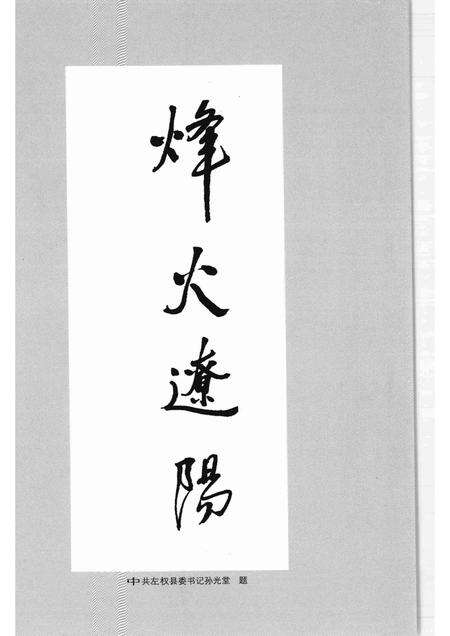 烽火遼陽
中共左权县委书记孙光堂 题